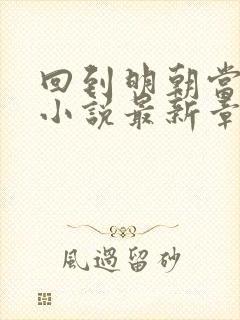 回到明朝當
小説最新章
風過留砂